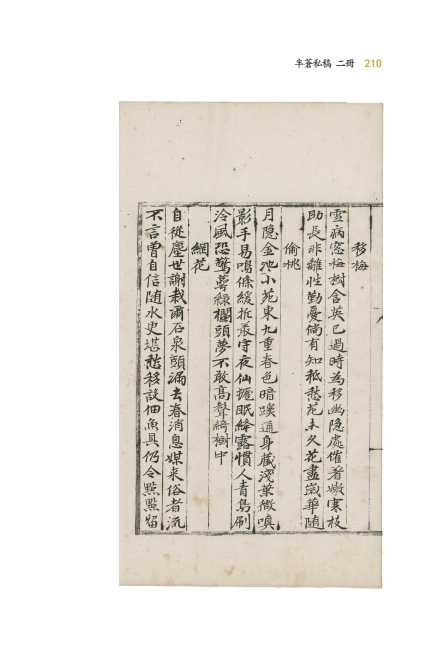 半蒼私稿 二冊 210
移梅
雪病窓梅樹含英已過時為移幽隐處催著嫩寒枝
助長非離性勤憂倘有知秪愁花未久花盡歲華随
偷桃
月隐金池小苑東九重春色暗蹊通身藏淺葉微嗔
影手易鳴條緩折最守夜仙厖眠絳露慣人青鳥刷
冷風恐驚蕚綠欄頭夢不敢高聲綺樹中
網花
自從塵世謝栽爾石泉頭漏去春消息媒来俗者流
不言曽自信随水更堪愁移設佃魚具仍令點點留